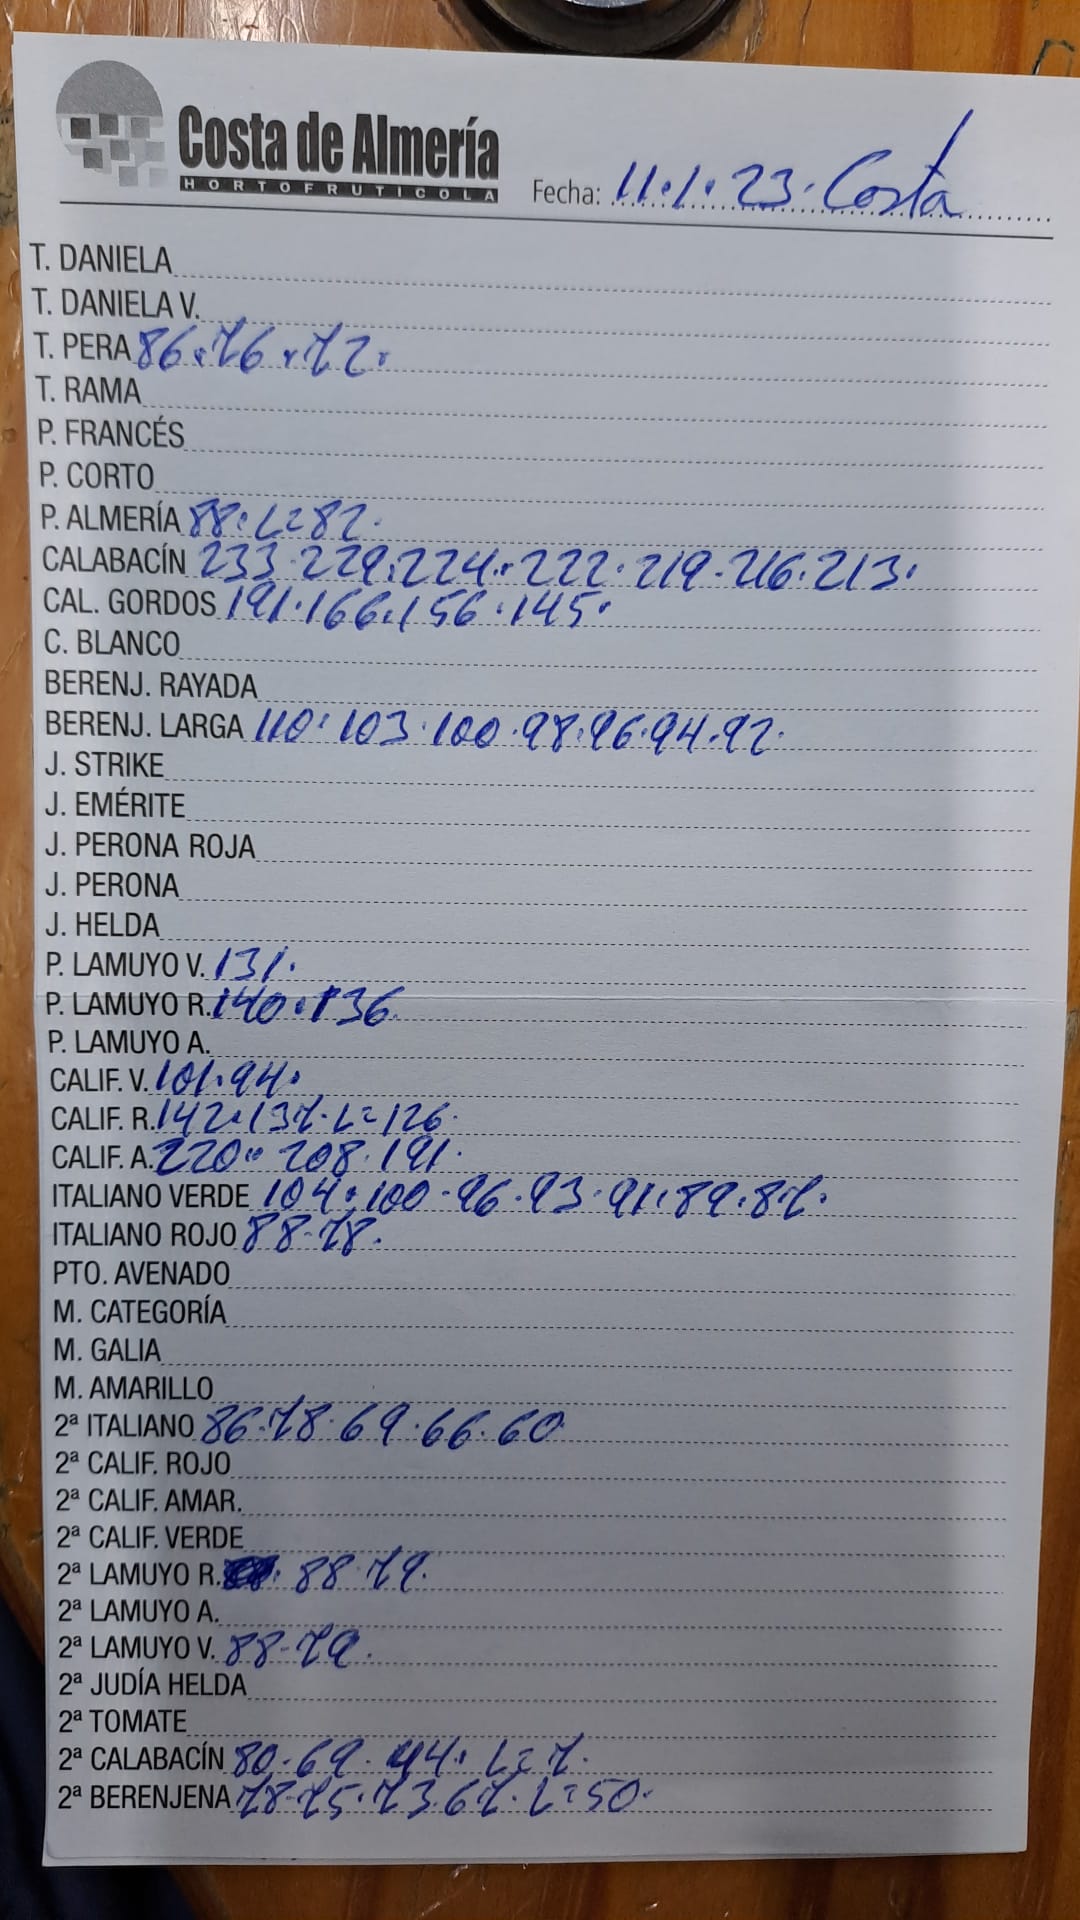 Costa de Almería
HORTOFRUTICOLA
Fecha: 11.1.23. Costa
T. DANIELA
T. DANIELA V.
T. PERA 86.76.72.
T. RAMA
P. FRANCÉS
P. CORTO
P. ALMERÍA 88. L=82.
CALABACÍN 233.229.224..222.219.216.213.
CAL. GORDOS 191.166.156.145.
C. BLANCO
BERENJ. RAYADA
BERENJ. LARGA 110.103.100.98.96.94.92.
J. STRIKE
J. EMÉRITE
J. PERONA ROJA
J. PERONA
J. HELDA
P. LAMUYO V. 131.
P. LAMUYO R. 140.136.
P. LAMUYO A.
CALIF. V. 101.94.
CALIF. R. 142.137. L=126.
CALIF. A. 220.. 208.191.
ITALIANO VERDE 104.100.96.93.91.89.87.
ITALIANO ROJO 88-78.
PTO. AVENADO
M. CATEGORÍA
M. GALIA
M. AMARILLO
2ª ITALIANO 86.78.69.66.60
2ª CALIF. ROJO
2ª CALIF. AMAR.
2ª CALIF. VERDE
2ª LAMUYO R. 88-79.
2ª LAMUYO A.
2ª LAMUYO V. 88-79.
2ª JUDÍA HELDA
2ª TOMATE
2ª CALABACÍN 80.69.44. L=7.
2ª BERENJENA 78-75.73.67. L=50.